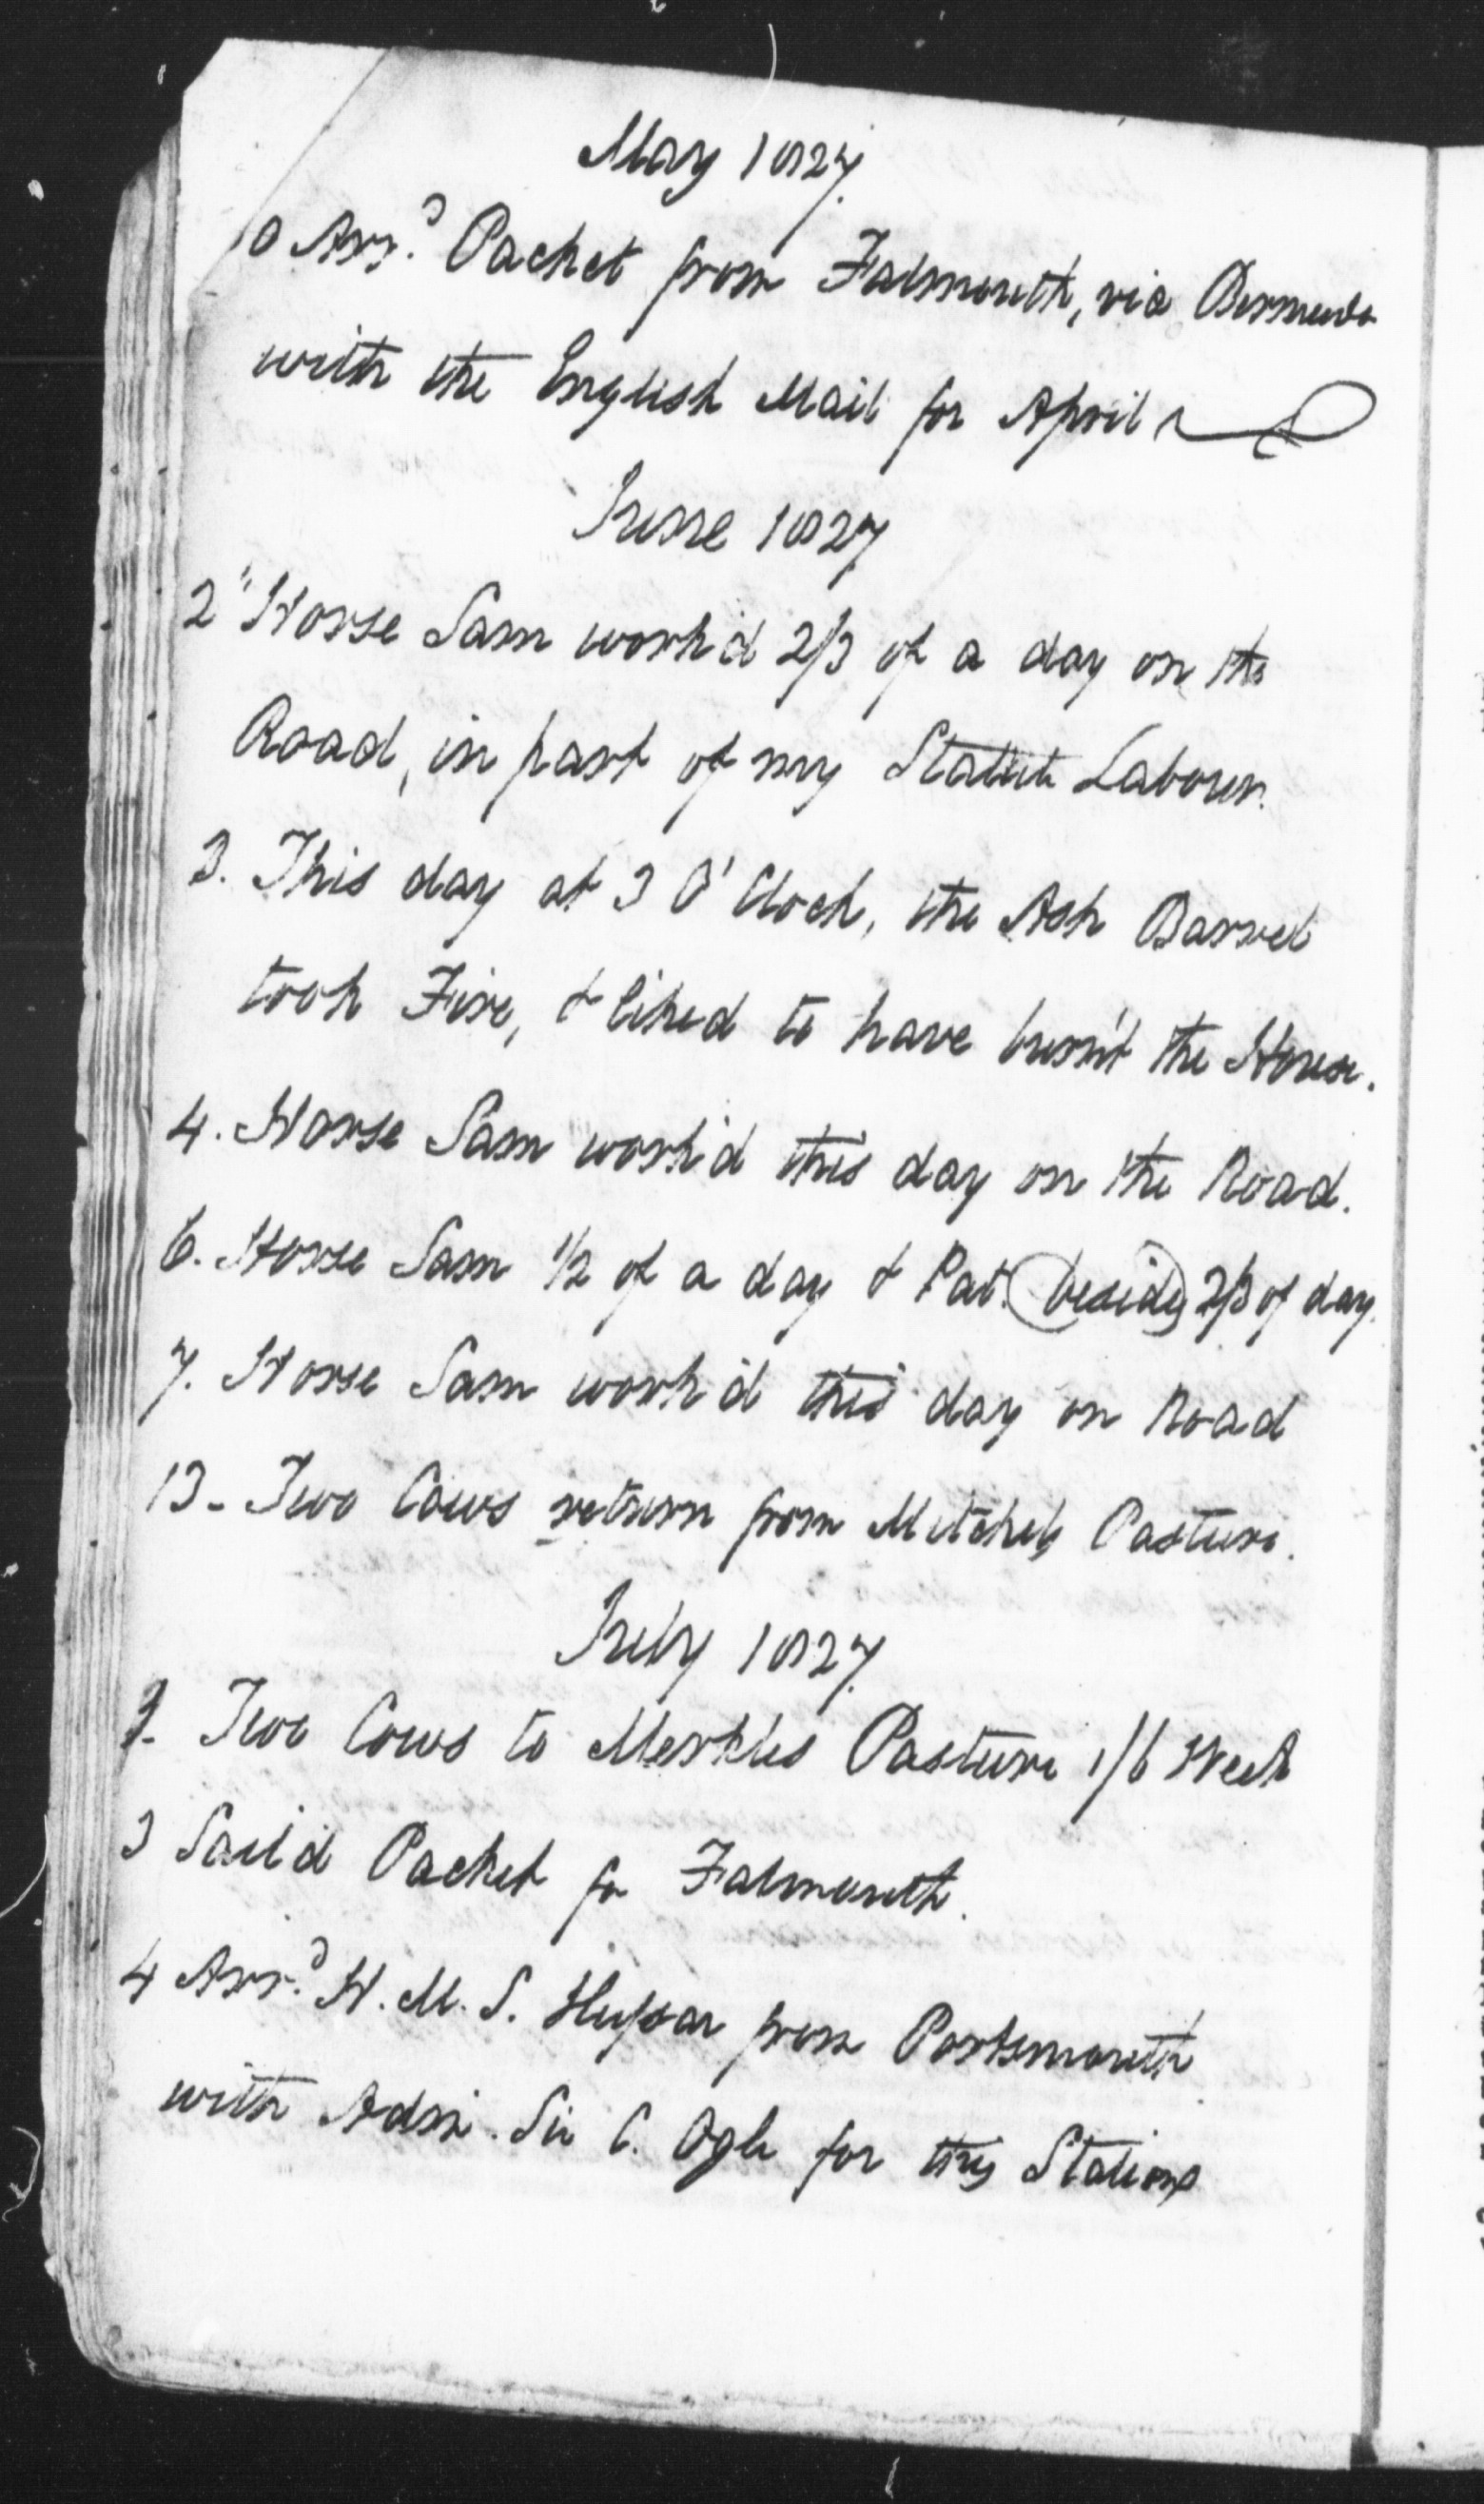 May 1827.
10 Arrd. Packet from Falmouth, via Bermuda
with the English Mail for April
June 1827
2" Horse Sam work'd 2/3 of a day on the
Road, in part of my Statute Labour.
3. This day at 3 O'Clock, the Ash Barrel
took Fire, & liked to have burn't the House.
4. Horse Sam work'd this day on the Road.
6. Horse Sam 1/2 of a day & Pat. (besides) 2/3 of day.
7. Horse Sam work'd this day on Road
13 - Two Cows return from Mitchels Pasture.
July 1827.
1 - Two Cows to Merkles Pasture 1/6 Week
3 Sail'd Packet for Falmouth.
4 Arrd. H. M. S. Hussar from Portsmouth
with Adm. Sir C. Ogle for this Station